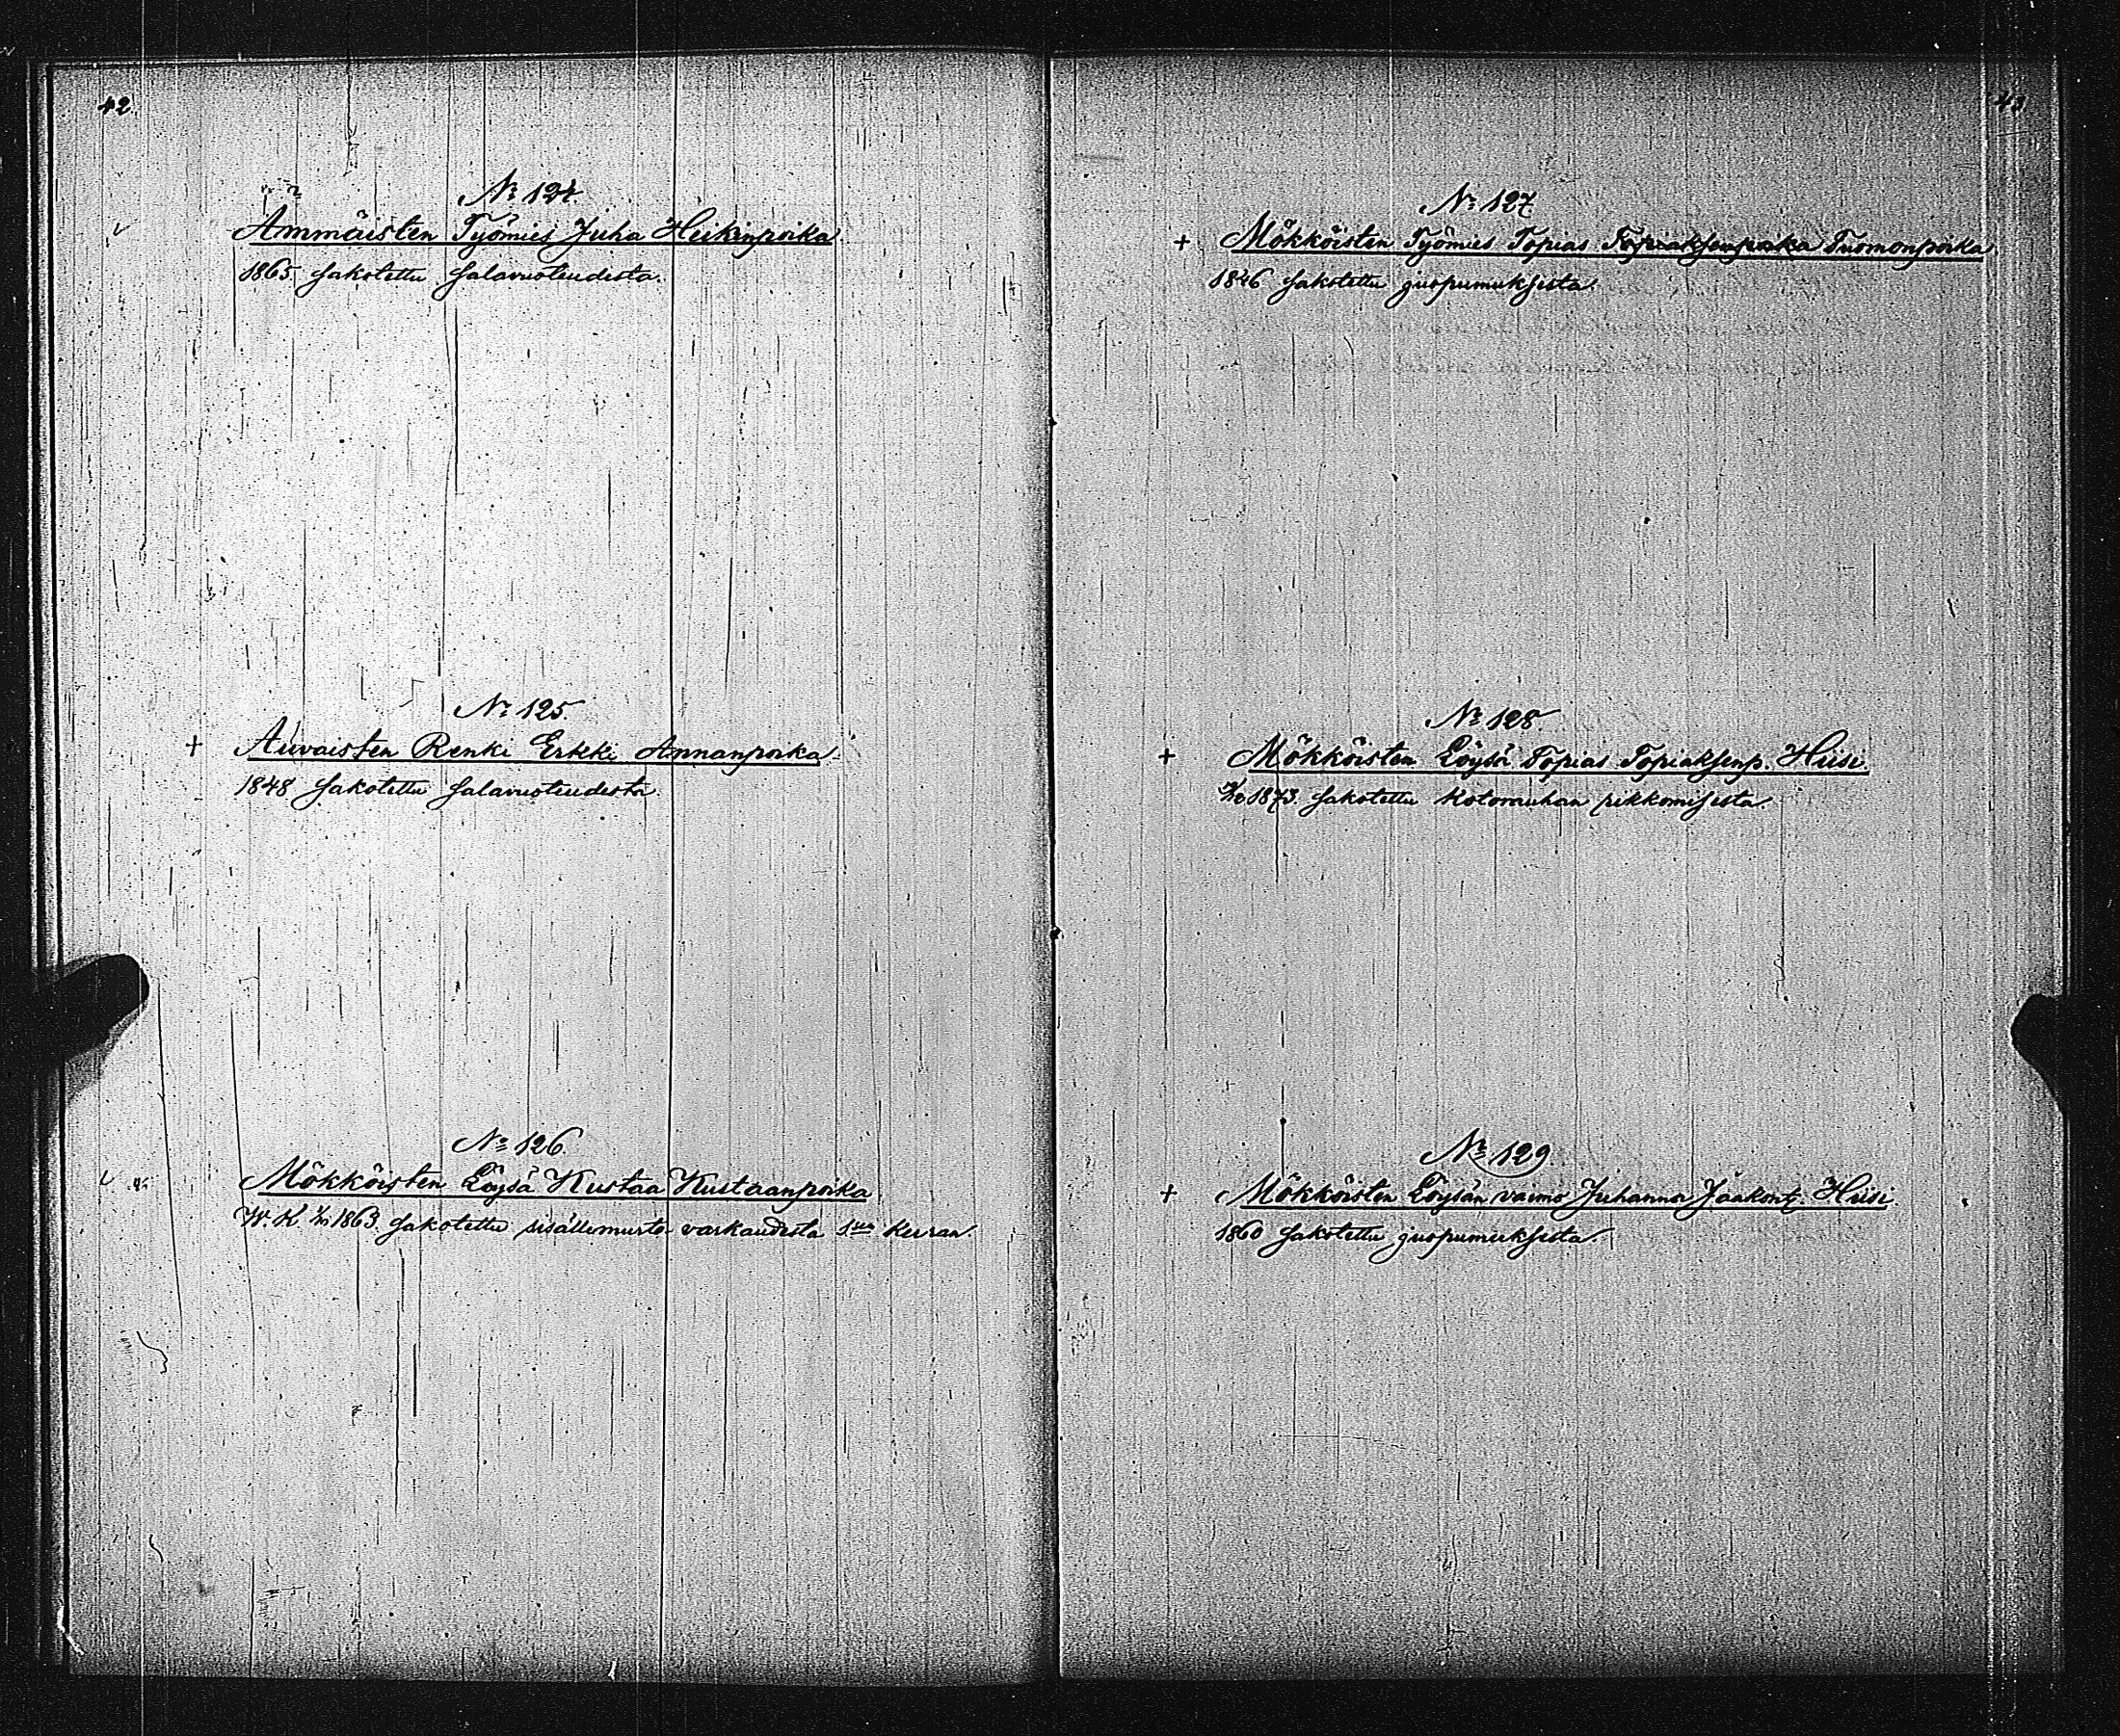 42.
№ 124.
Ammäisten Työmies Juha Heikinpoika
1865 sakotettu salavuoteudesta.
№ 125.
+ Auvaisten Renki Erkki Annanpoika
1848 sakotettu salavuoteudesta.
№ 126.
Mökköisten Löysä Kustaa Kustaanpoika
W. K. 1863 sakotettu sisällemurto-varkaudesta 1:sen kerran.
43.
№ 127.
+ Mökköisten Työmies Topias Topiaksenpoika Tuomonpoika
1846 sakotettu juopumuksesta.
№ 128.
+ Mökköisten Löysä Topias Topiaksenp. Hiisi.
1873. sakotettu kotorauhan rikkomisesta.
№ 129.
+ Mökköisten Löysän vaimo Juhanna Jaakont. Hiisi
1860 sakotettu juopumuksesta.